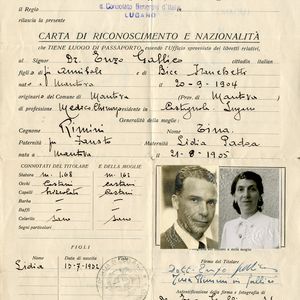 Il Regio
s. Consolato Generale d'Italia
LUGANO
rilascia la presente
CARTA DI RICONOSCIMENTO E NAZIONALITÀ
che TIENE LUOGO DI PASSAPORTO, essendo l'Ufficio sprovvisto dei libretti relativi,
al Signor Dr. Enzo Gallico cittadino italian
figlio di Annibale e di Bice Franchetti
nato a Mantova il 20-9-1904
originario del Comune di Mantova (Prov. di Mantova)
di professione Medico Chirurgo residente a Castagnola Lugano
Generalità della moglie:
Cognome Rimini Nome Erna
Paternità fu Fausto Maternità Lidia Padoa
nata a Mantova il 21-8-1905
CONNOTATI DEL TITOLARE E DELLA MOGLIE
Statura m. 1.68 m. 163
Occhi castani castani
Capelli brizzolati castani
Barba
Baffi
Colorito sano sano
FIGLI
Nome Data di nascita
Lidia 15-7-1932
Firma del Titolare
Dott. Enzo Gallico
Erna Rimini in Gallico
Autentificazione della firma e fotografia di